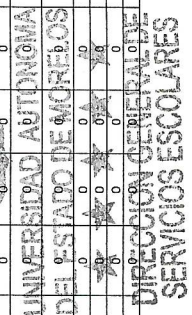 UNIVERSIDAD AUTONOMA
DEL ESTADO DE MORELOS
DIRECCION GENERAL DE
SERVICIOS ESCOLARES